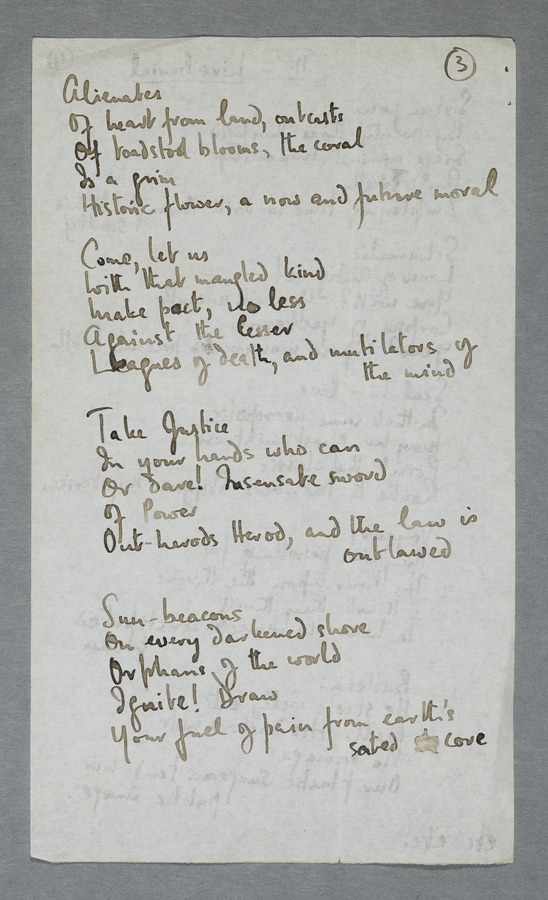 3
Alienates
Of heart from land, outcasts
Of toadstool blooms, the coral
Is a grim
Historic flower, a now and future moral
Come, let us
With that mangled kind
Make pact, no less
Against the lesser
Leagues of death, and mutilators of
the mind
Take Justice
In your hands who can
Or dare! Insensate sword
Of Power
Out-herods Herod, and the law is
outlawed
Sun-beacons
On every darkened shore
Orphans of the world
Ignite! Draw
Your fuel of pain from earth's
sated core